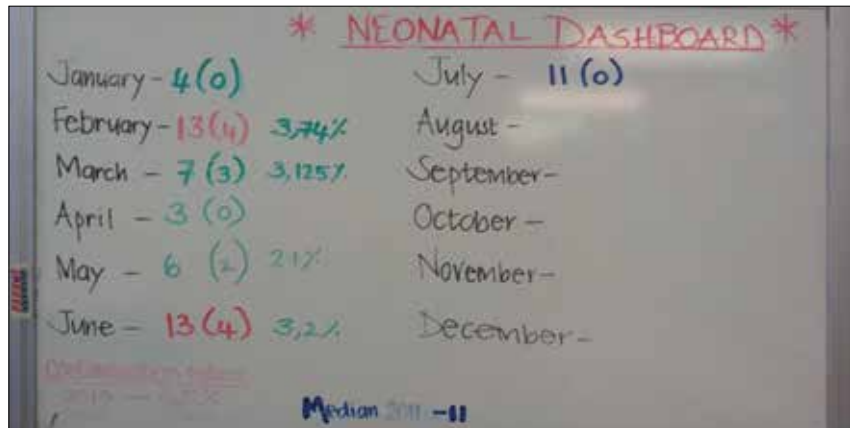 * NEONATAL DASHBOARD *
January - 4 (0)
February - 13 (4) 3,74%
March - 7 (3) 3,125%
April - 3 (0)
May - 6 (2) 2,1%
June - 13 (4) 3,2%
July - 11 (0)
August -
September -
October -
November -
December -
Median 2011 - 11